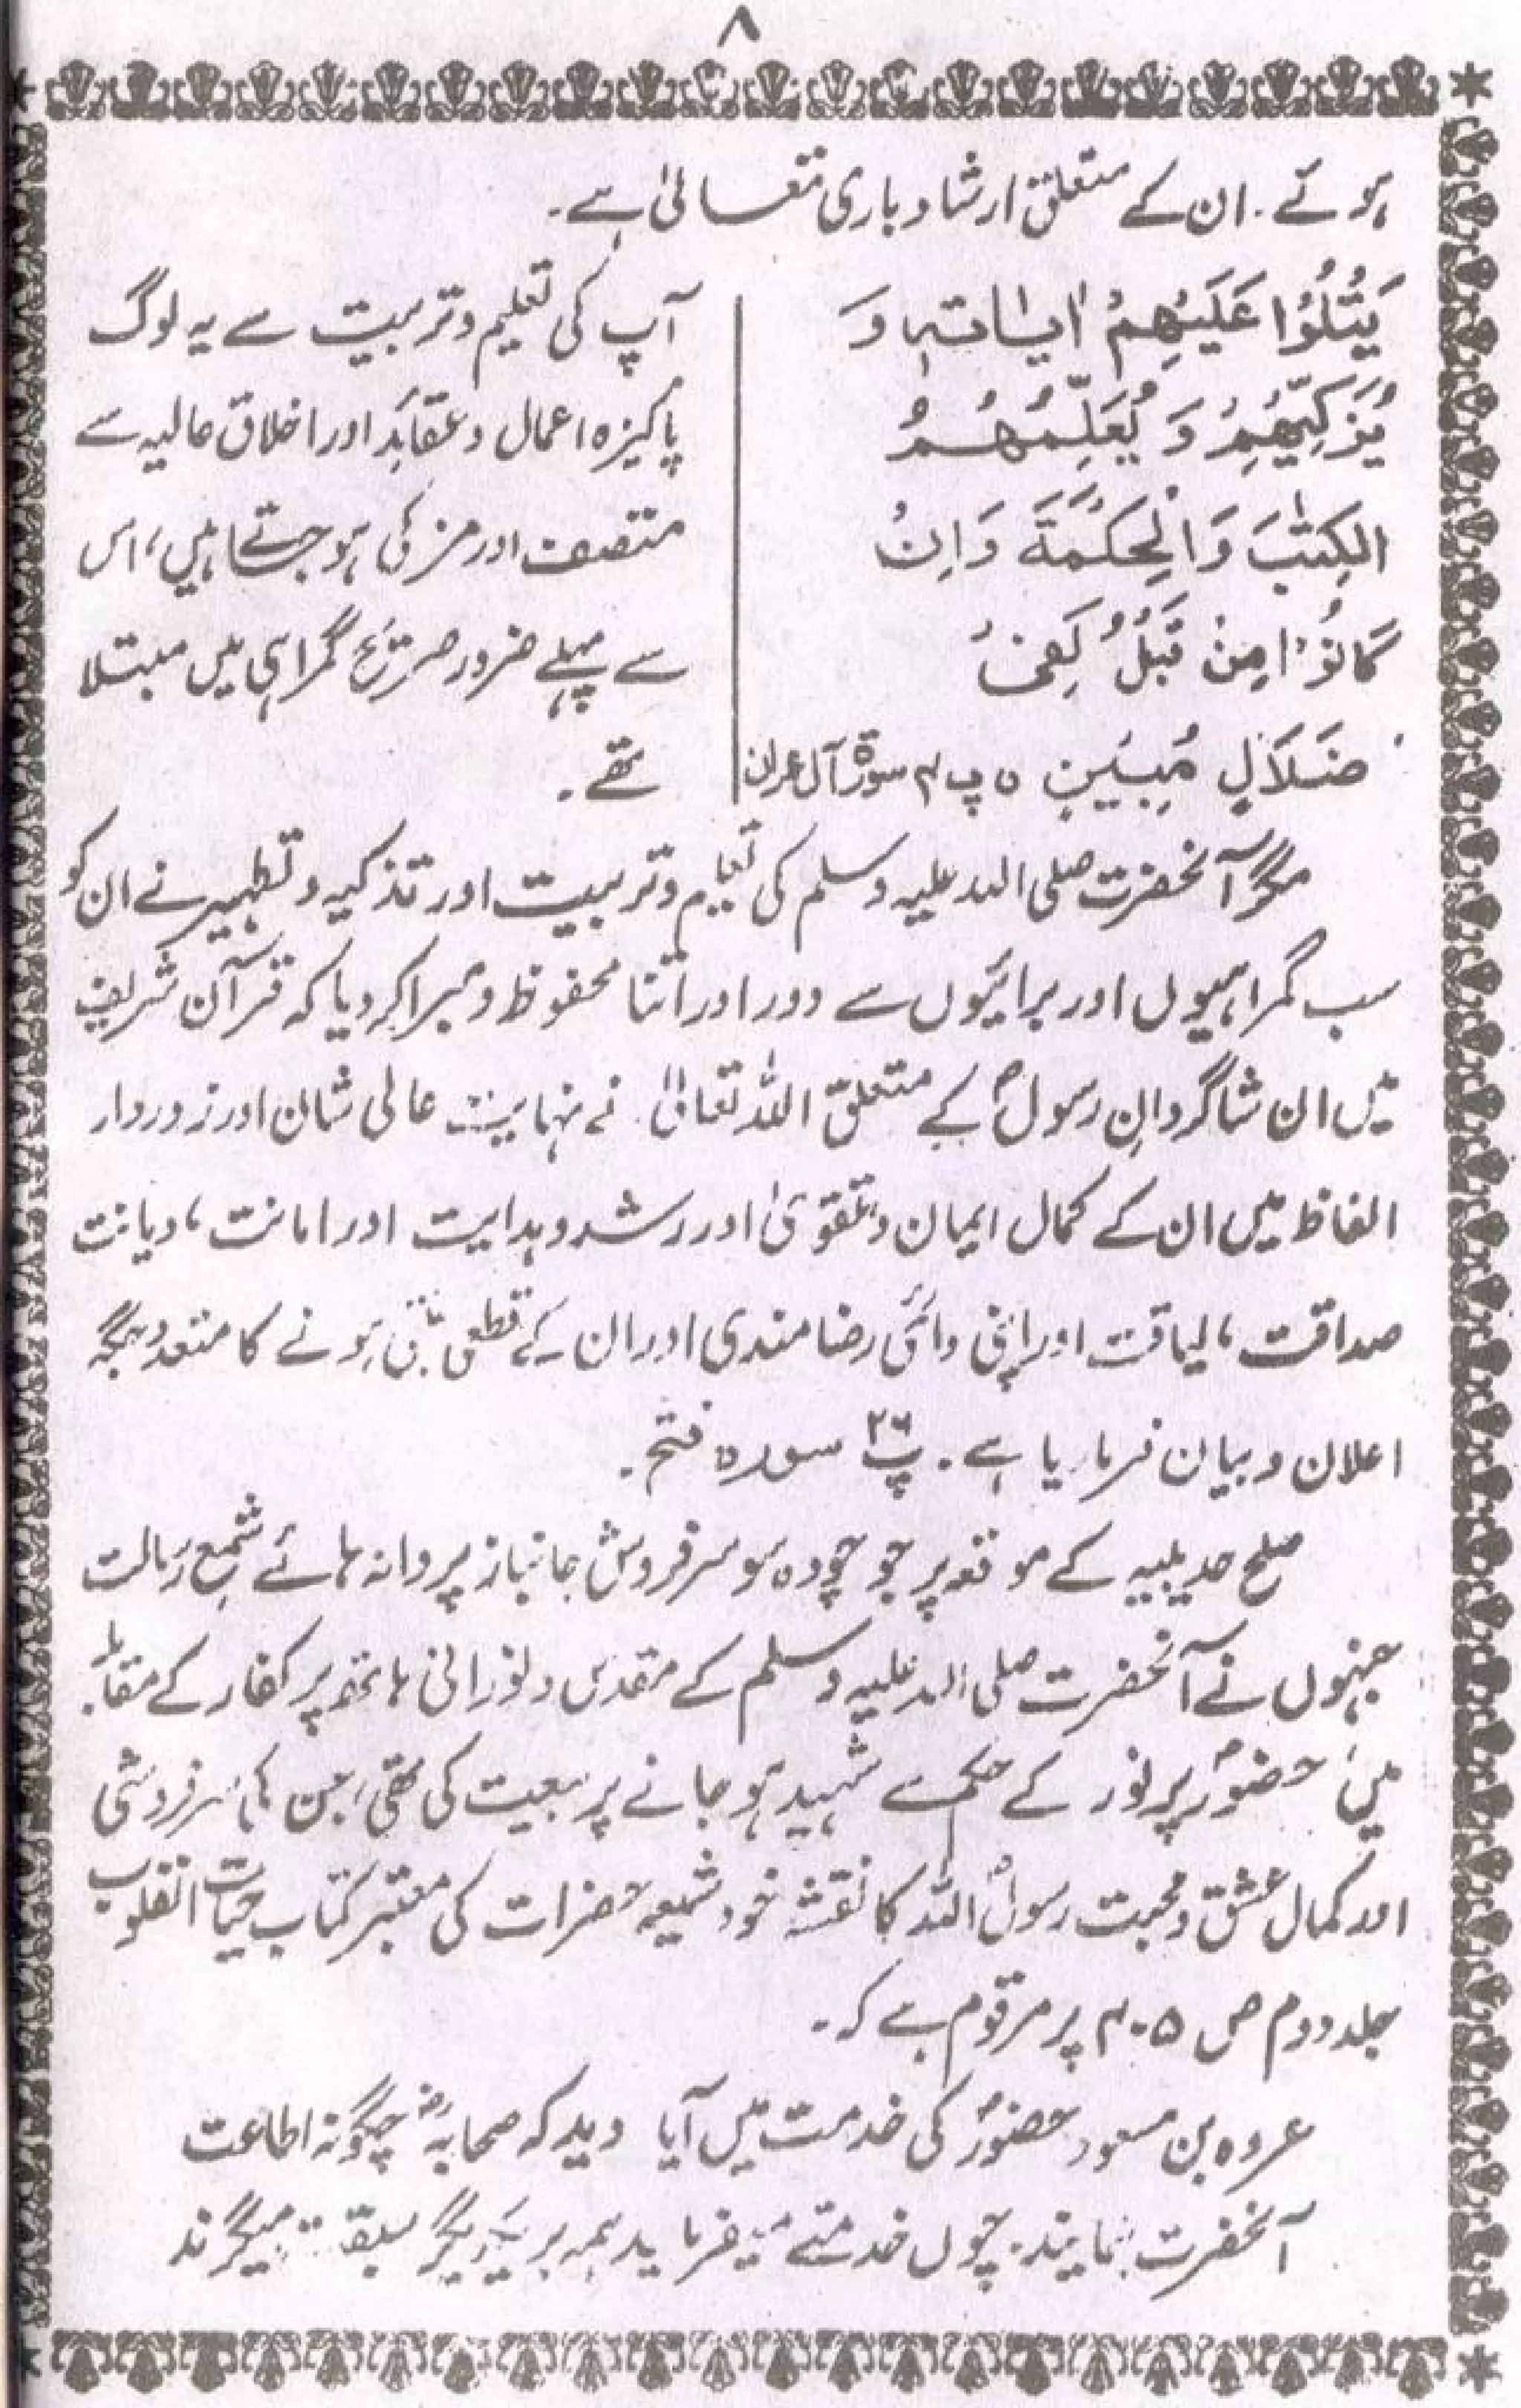 ۸
ہوئے . ان کے متعلق ارشاد باری تعالیٰ ہے۔
یَتْلُوْا عَلَیْہِمْ اٰیٰاتہٖ وَ
یُزَکِّیْہِمْ وَ یُعَلِّمُہُمُ
الکِتٰبَ وَالْحِکْمَۃَ وَاِنْ
کَانُوْا مِنْ قَبْلُ لَفِیْ
ضَلَالٍ مُبِیْنٍ ۵ پ۴ سورۃ آل عمران
آپ کی تعلیم و تربیت سے یہ لوگ
پاکیزہ اعمال و عقائد اور اخلاق عالیہ سے
متصف اور مزکی ہو جتے ہیں، اس
سے پہلے ضرور صریح گمراہی میں مبتلا
تھے۔
مگر آنحضرت صلی اللہ علیہ وسلم کی تعلیم و تربیت اور تذکیہ و تطہیر نے ان کو
سب گمراہیوں اور برائیوں سے دور اور اتنا محفوظ و مبرا کر دیا کہ قرآن شریف
میں ان شاگردانِ رسولؐ کے متعلق اللہ تعالیٰ نے نہایت عالی شان اور زوردار
الفاظ میں ان کے کمال ایمان و تقویٰ اور رشد و ہدایت اور امانت، دیانت
صداقت، لیاقت اور اپنی دائمی رضا مندی اور ان کے قطعی ہونے کا متعدد جگہ
اعلان و بیان فرمایا ہے۔ پ۲۶ سورہ فتح۔
صلح حدیبیہ کے موقعہ پر جو چودہ سو سرفروش جانباز پروانہ ہائے شمع رسالت
جنہوں نے آنحضرت صلی اللہ علیہ وسلم کے مقدس و نورانی ہاتھ پر کفار کے مقابلہ
میں حضورؐ پر نور کے حکم سے شہید ہو جانے پر بیعت کی تھی، جن کا سرفروشی
اور کمال عشق و محبت رسولؐ اللہ کا نقشہ خود شیعہ حضرات کی معتبر کتاب حیات القلوب
جلد دوم ص ۴۰۵ پر مرقوم ہے کہ۔
عروہ بن مسعود حضورؐ کی خدمت میں آیا دید کہ صحابہؓ چگونہ اطاعت
آنحضرت نمایند۔ چوں خدمتے میفرماید ہمہ بر یکدیگر سبقت میگرند